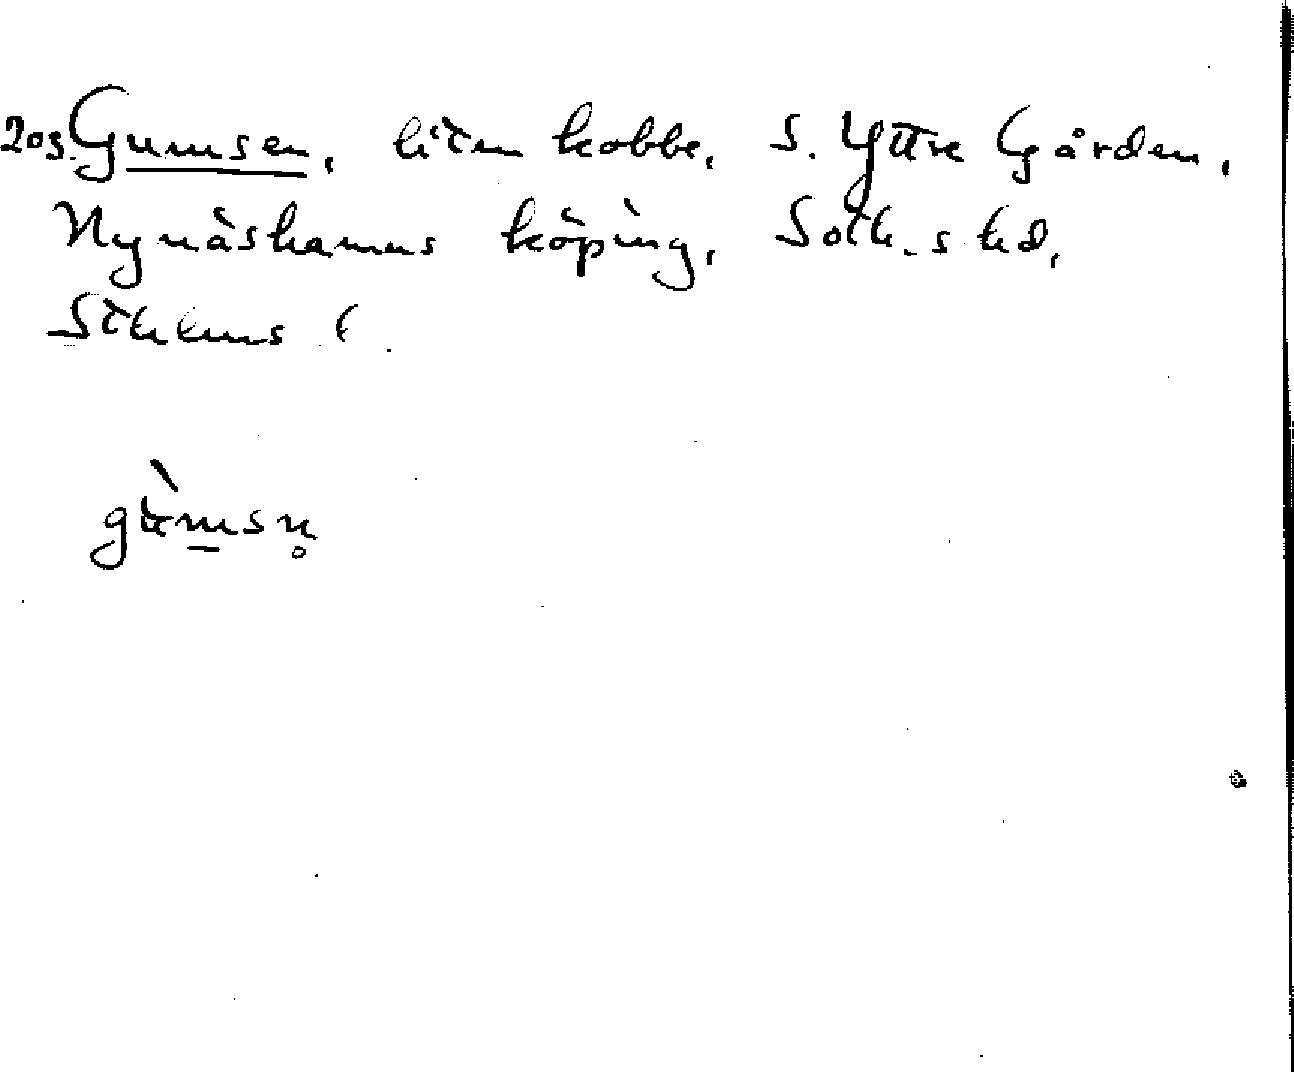 203. Gumsen, liten kobbe, S. Yttre Gården,
Nynäshamns köping, Soth. s hd,
Sthlms l
gu̇̀msn̥